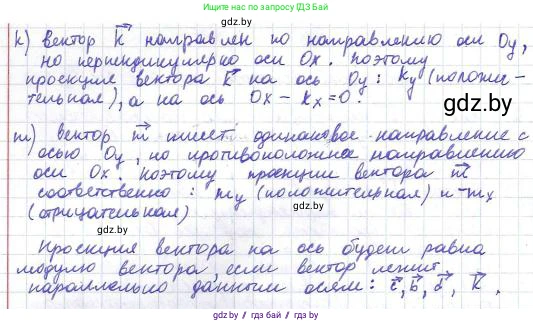 Ищите нас по запросу ГДЗ Бел
gdz.by
k) вектор k направлен по направлению оси Oy,
но перпендикулярно оси Ox. Поэтому
проекция вектора k на ось Oy: ky (положи-
тельная), а на ось Ox - kx = 0.
gdz.by
m) вектор m имеет одинаковое направление с
осью Oy, но противоположна направлению
оси Ox. Поэтому проекции вектора m
соответственно: my (положительная) и -mx
(отрицательная)
gdz.by
Проекция вектора на ось будет равна
модулю вектора, если вектор лежит
параллельно данным осям: c, b, d, k.
gdz.by / gdz.by / gdz.by